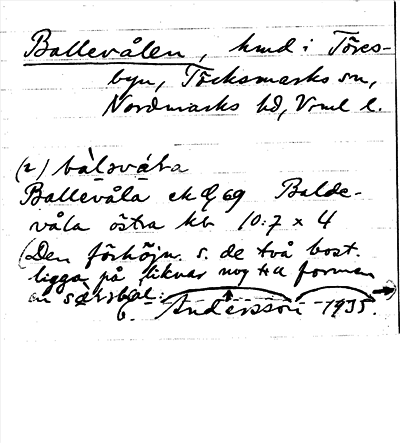 Ballevålen, hmd i Töres-
byn, Töcksmarks sn,
Nordmarks hd, Vrml l.
(2) bàləvàla
Ballevåla ek Q 69 Balde-
våla östra kb 10:7 x 4
(Den förhöjn. s. de två bost.
ligga på likvar nog till formen
en särskild.
G. Andersson 1935.